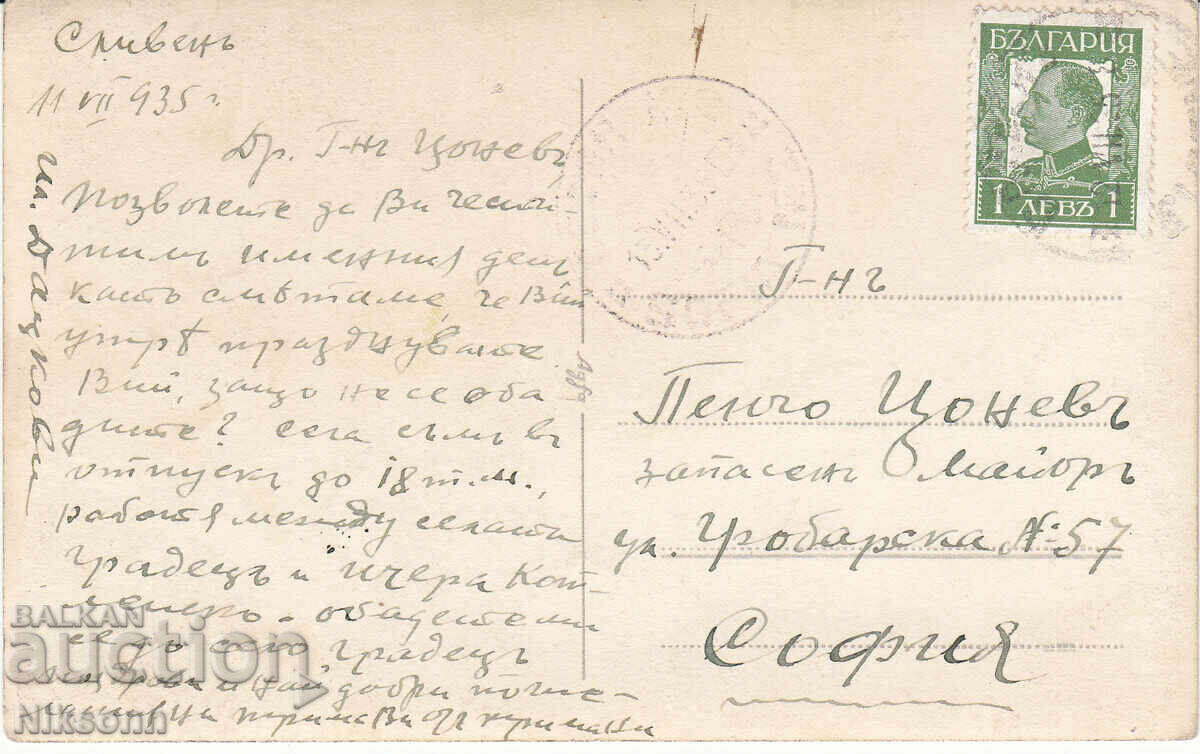 Сливенъ
11 VII 935 г.
Др. Г-нъ Цоневъ
Позволете да Ви чести-
тимъ имения день
като смѣтаме, че Вий
утрѣ празднувате
Вий, защо не се оба
дите? сега съмъ въ
отпускъ до 18 т.м.,
работя между селата
Градецъ и Ичера Кот-
ленско. обадете ми
се до село Градецъ
и най добри поже-
Ил. Дацкови
БЪЛГАРИЯ
1 ЛЕВЪ 1
Г-нъ
Пенчо Цоневъ
запасенъ майоръ
ул. Гробарска № 57
София
BALKAN
auction
Niksonn